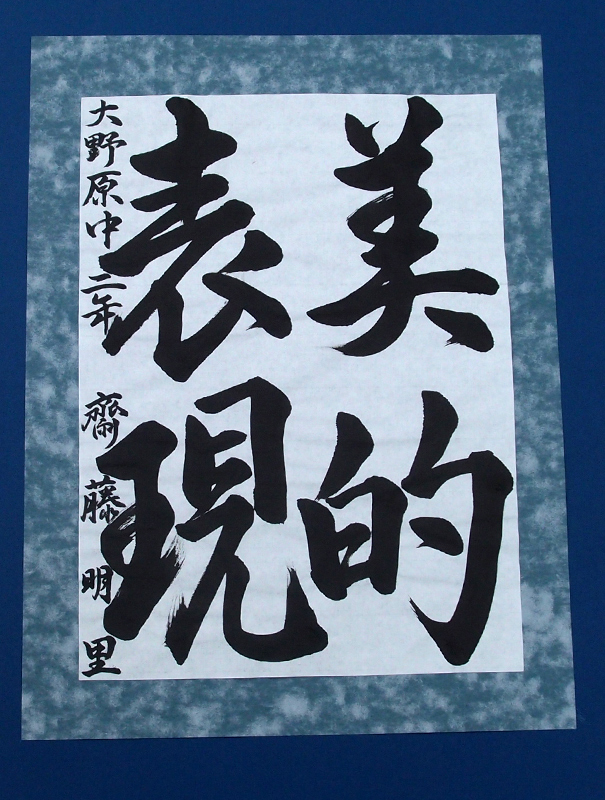 美的
表現
大野原中二年 齋藤明里